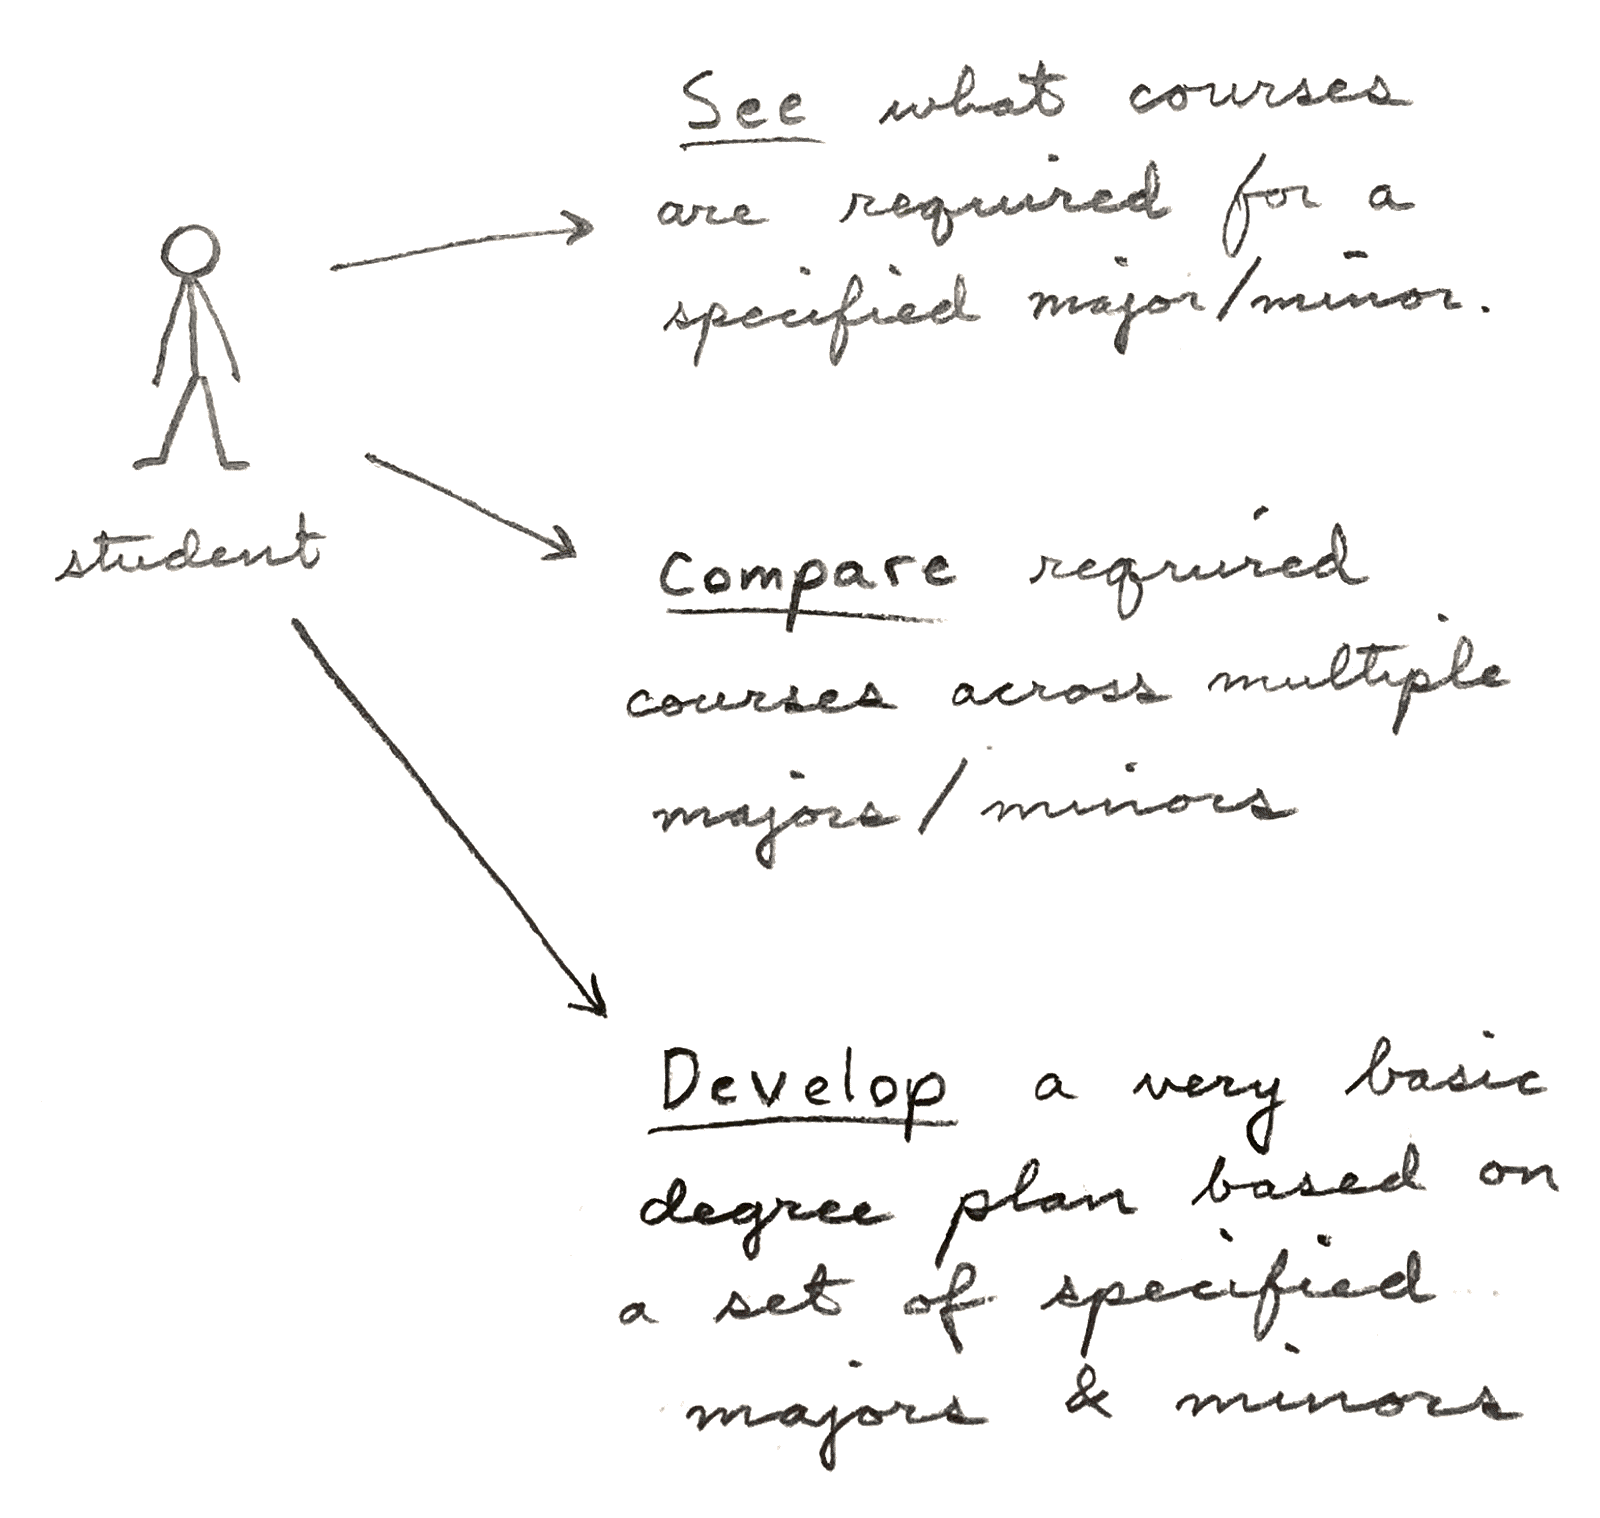 See what courses
are required for a
specified major/minor.
student
Compare required
courses across multiple
majors/minors
Develop a very basic
degree plan based on
a set of specified
majors & minors